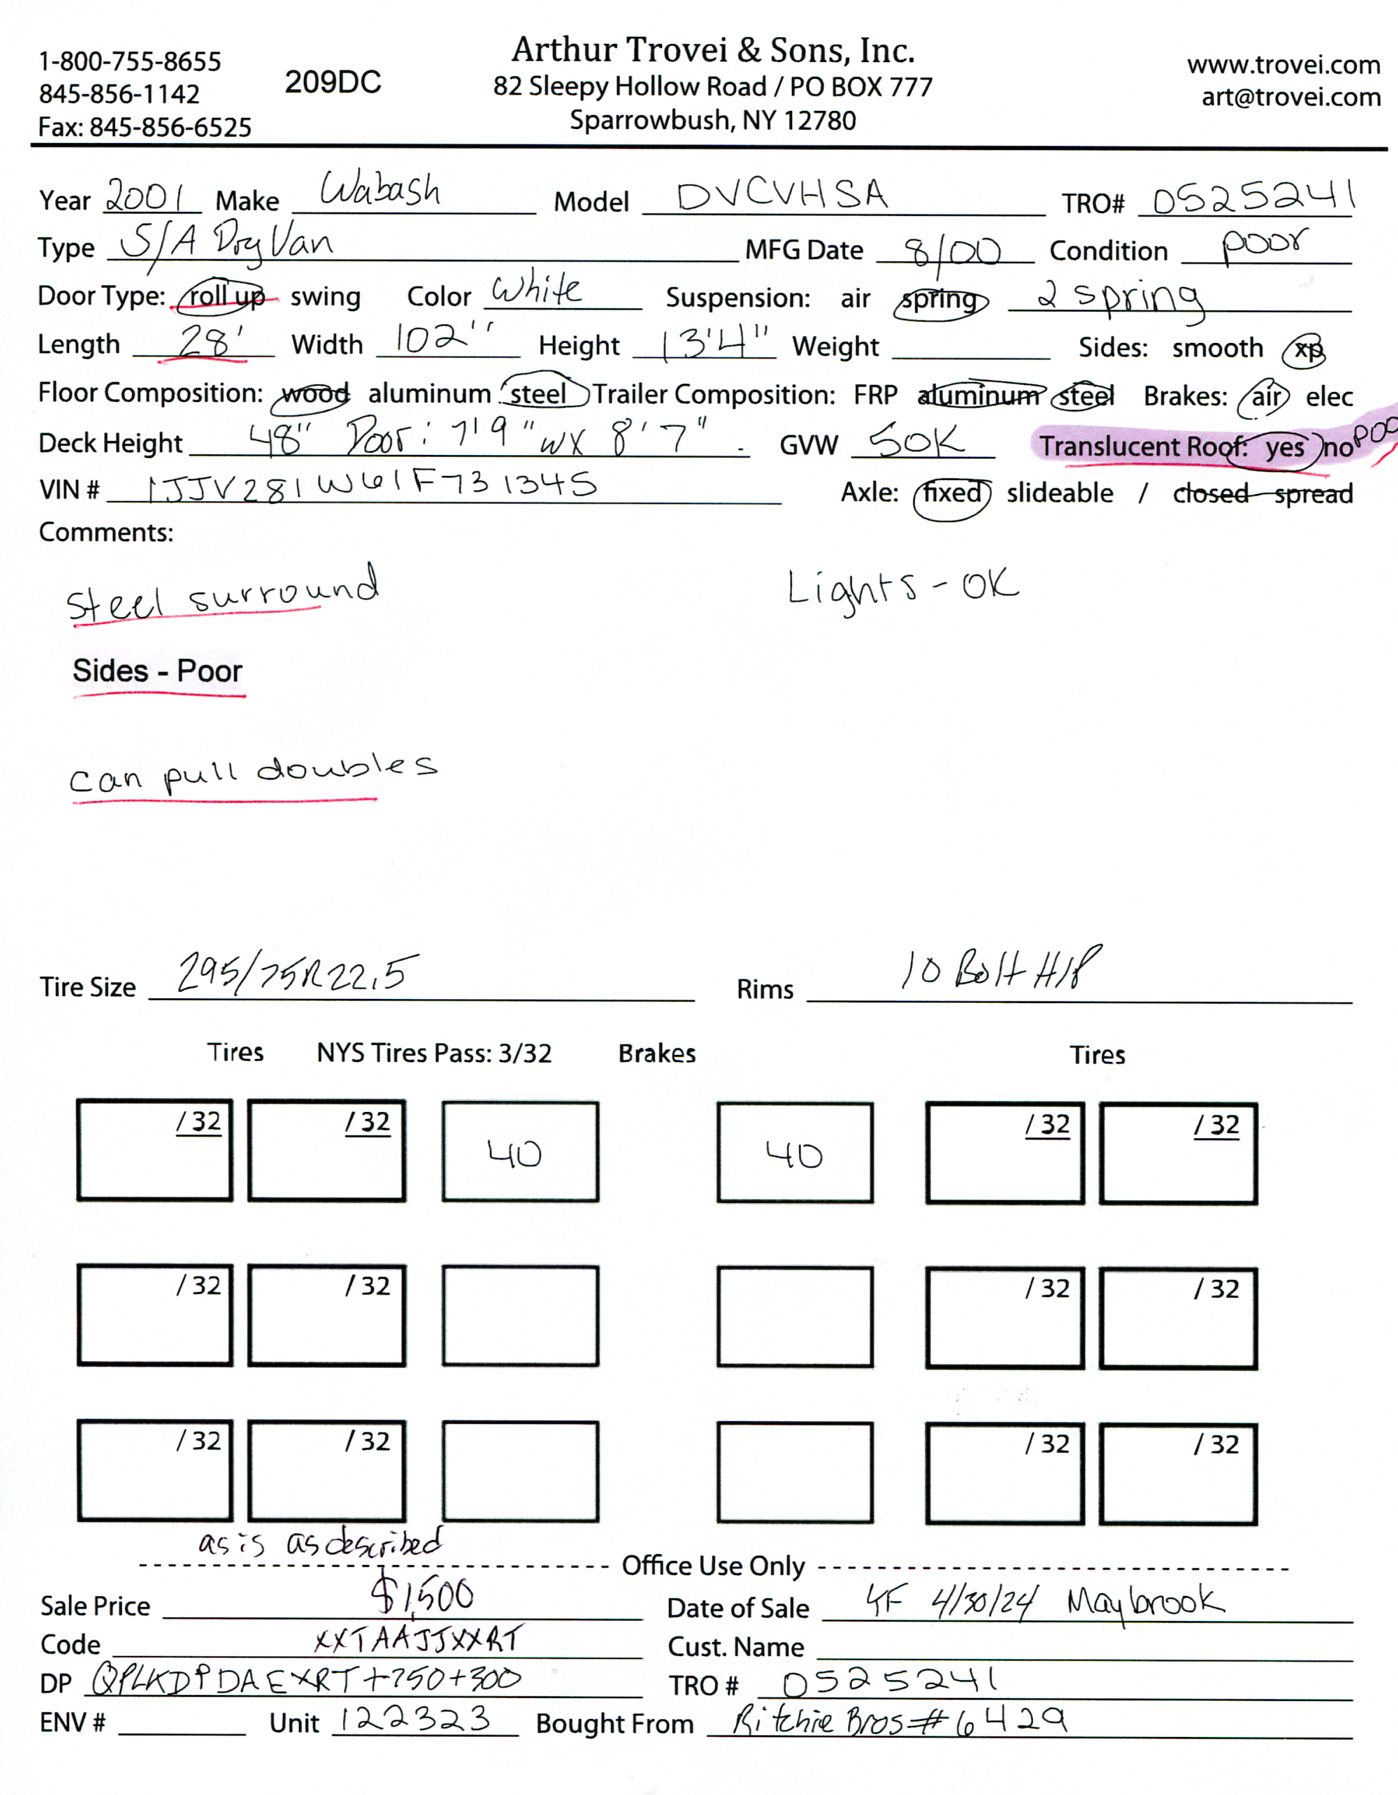 1-800-755-8655
845-856-1142
Fax: 845-856-6525
209DC
Arthur Trovei & Sons, Inc.
82 Sleepy Hollow Road / PO BOX 777
Sparrowbush, NY 12780
www.trovei.com
art@trovei.com
Year 2001 Make Wabash Model DVCVHSA TRO# 0525241
Type S/A Dry Van MFG Date 8/00 Condition poor
Door Type: roll up swing Color White Suspension: air spring 2 spring
Length 28' Width 102'' Height 13'4" Weight Sides: smooth xp
Floor Composition: wood aluminum steel Trailer Composition: FRP aluminum steel Brakes: air elec
Deck Height 48" Door: 7'9" w x 8'7" GVW 50K Translucent Roof: yes no
VIN # 1JJV281W61F731345 Axle: fixed slideable / closed spread
Comments:
steel surround Lights - OK
Sides - Poor
can pull doubles
Tire Size 295/75R22.5 Rims 10 Bolt H/P
Tires NYS Tires Pass: 3/32 Brakes Tires
/ 32 / 32 40 40 / 32 / 32
/ 32 / 32 / 32 / 32
/ 32 / 32 / 32 / 32
as is as described
Office Use Only
Sale Price $1,500 Date of Sale YF 4/30/24 Maybrook
Code XXTAAJJXXRT Cust. Name
DP QPLKDPDAEXRT+750+300 TRO # 0525241
ENV # Unit 122323 Bought From Ritchie Bros #6429